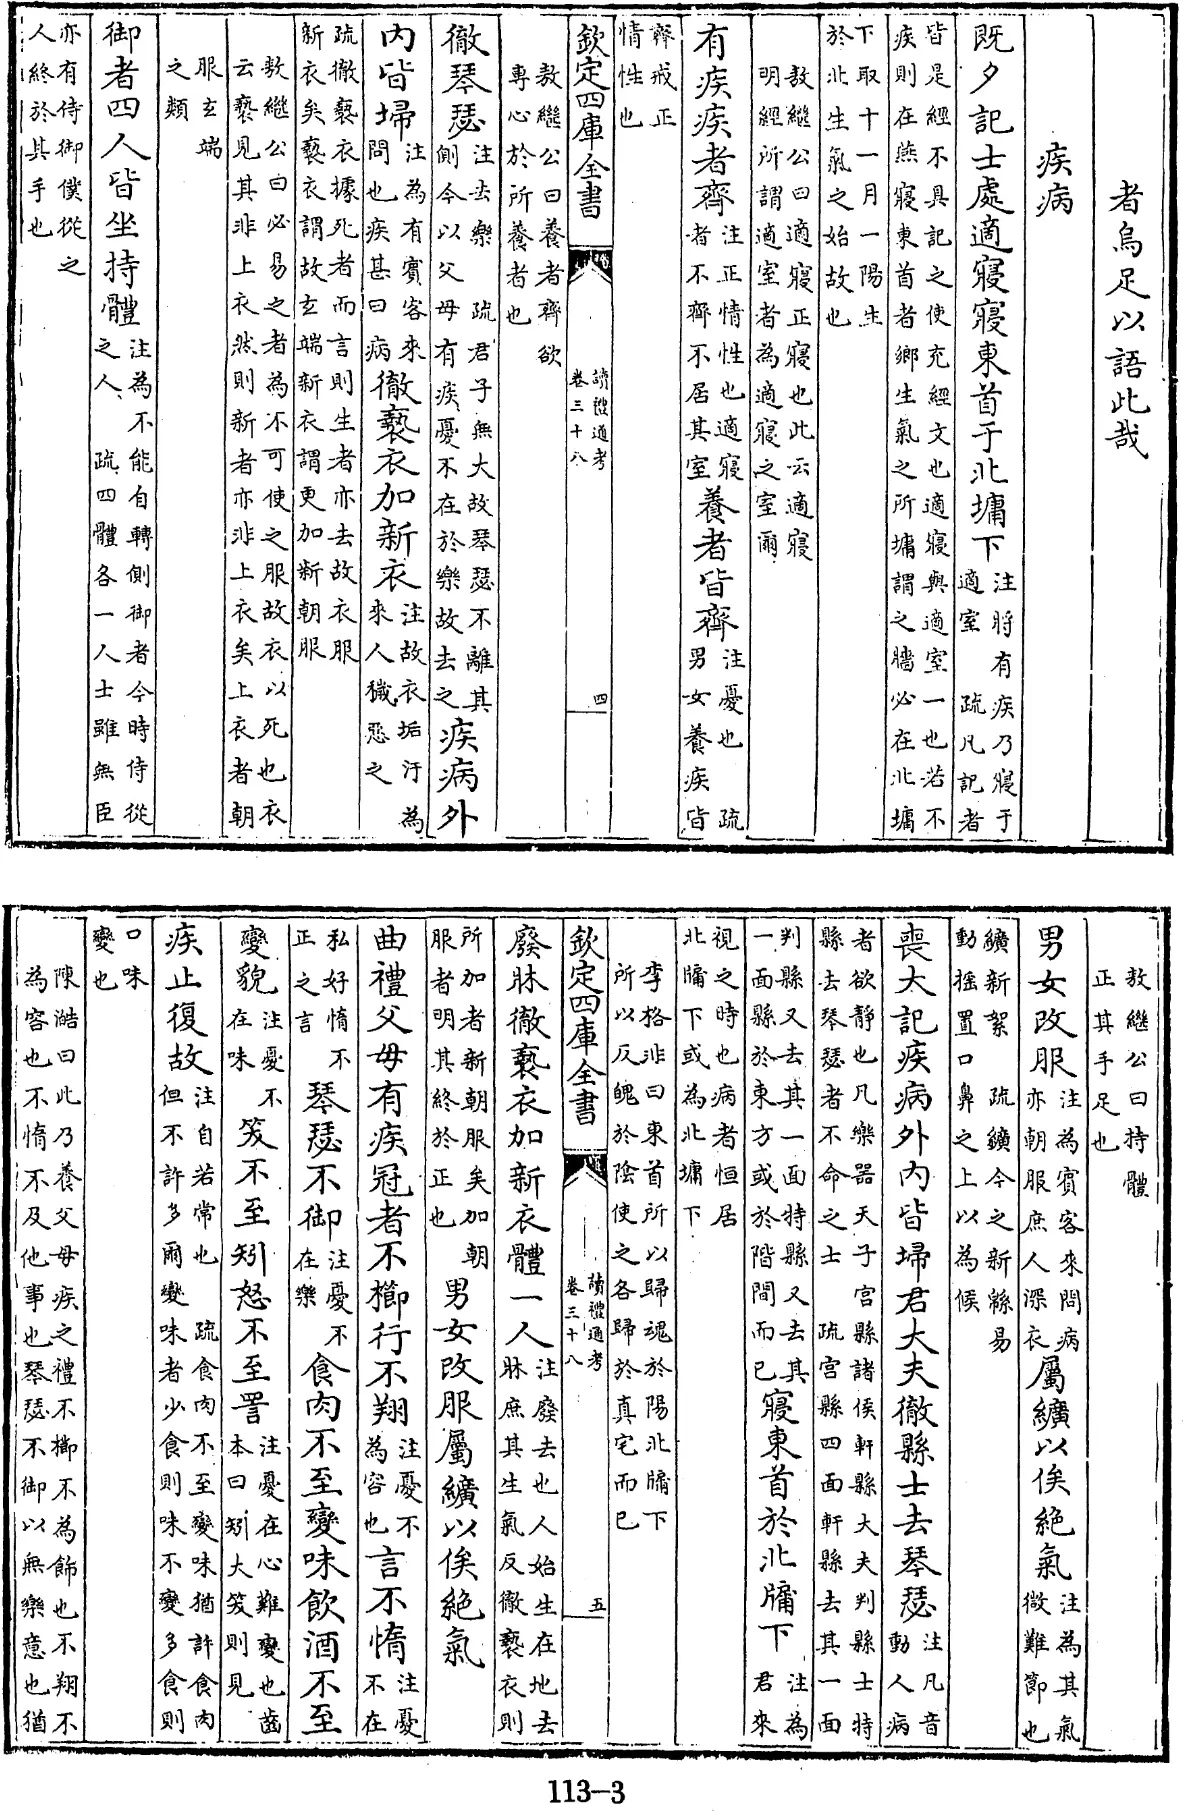 者烏足以語此哉
疾病
既夕記士處適寢寢東首于北墉下注將有疾乃寢于適室 疏凡記者
皆是經不具記之使充經文也適寢與適室一也若不疾則在燕寢東首者鄉生氣之所墉謂之牆必在北墉
下取十一月一陽生於北生氣之始故也
敖繼公曰適寢正寢也此云適寢明經所謂適室者為適寢之室爾
有疾疾者齊注正情性也適寢者不齊不居其室養者皆齊注憂也 疏男女養疾皆
齊戒正情性也
欽定四庫全書 讀禮通考 卷三十八 四
敖繼公曰養者齊欲專心於所養者也
徹琴瑟注去樂 疏君子無大故琴瑟不離其側今以父母有疾憂不在於樂故去之疾病外
內皆埽注為有賓客來問也疾甚曰病徹褻衣加新衣注故衣垢汙為來人穢惡之
疏徹褻衣據死者而言則生者亦去故衣服新衣矣褻衣謂故玄端新衣謂更加新朝服
敖繼公曰必易之者為不可使之服故衣以死也衣云褻見其非上衣然則新者亦非上衣矣上衣者朝
服玄端之類
御者四人皆坐持體注為不能自轉側御者今時侍從之人 疏四體各一人士雖無臣
亦有侍御僕從之人終於其手也
敖繼公曰持體正其手足也
男女改服注為賓客來問病亦朝服庶人深衣屬纊以俟絕氣注為其氣微難節也
纊新絮 疏纊今之新緜易動搖置口鼻之上以為候
喪大記疾病外內皆埽君大夫徹縣士去琴瑟注凡音動人病
者欲靜也凡樂器天子宮縣諸侯軒縣大夫判縣士特縣去琴瑟者不命之士 疏宮縣四面軒縣去其一面
判縣又去其一面特縣又去其一面縣於東方或於階間而已寢東首於北牖下注為君來
視之時也病者恒居北牖下或為北墉下
李格非曰東首所以歸魂於陽北牖下所以反魄於陰使之各歸於真宅而已
欽定四庫全書 讀禮通考 卷三十八 五
廢牀徹褻衣加新衣體一人注廢去也人始生在地去牀庶其生氣反徹褻衣則
所加者新朝服矣加朝服者明其終於正也男女改服屬纊以俟絕氣
曲禮父母有疾冠者不櫛行不翔注憂不為容也言不惰注憂不在
私好惰不正之言琴瑟不御注憂不在樂食肉不至變味飲酒不至
變貌注憂不在味笑不至矧怒不至詈注憂在心難變也齒本曰矧大笑則見
疾止復故注自若常也 疏食肉不至變味猶許食肉但不許多爾變味者少食則味不變多食則
口味變也
陳澔曰此乃養父母疾之禮不櫛不為飾也不翔不為容也不惰不及他事也琴瑟不御以無樂意也猶
113-3